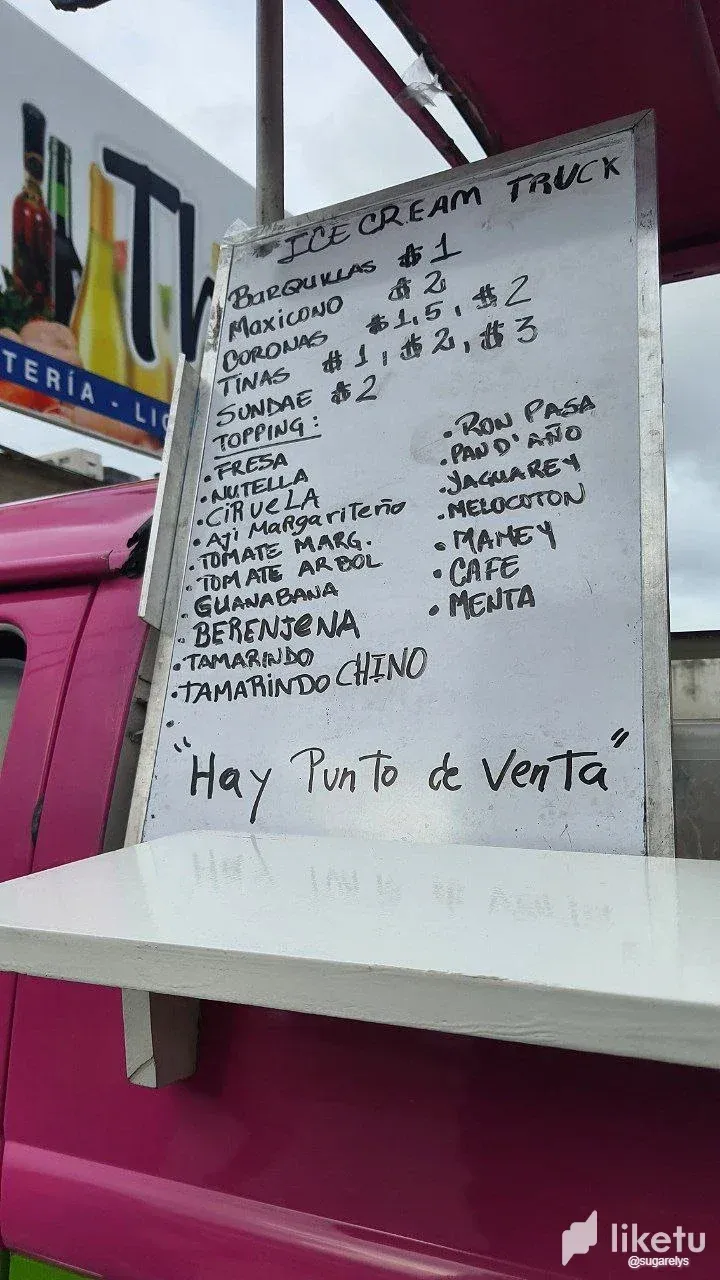 Th
TERÍA - LIC
ICE CREAM TRUCK
BARQUILLAS $1
MAXICONO $2
CORONAS $1,5, $2
TINAS $1, $2, $3
SUNDAE $2
TOPPING:
• FRESA
• NUTELLA
• CIRUELA
• AJI MARGARITEÑO
• TOMATE MARG.
• TOMATE ARBOL
• GUANABANA
• BERENJENA
• TAMARINDO
• TAMARINDO CHINO
•
• RON PASA
• PAN D'AÑO
• YAGUAREY
• MELOCOTON
• MAMEY
• CAFE
• MENTA
"Hay Punto de Venta"
liketu
@sugarelys